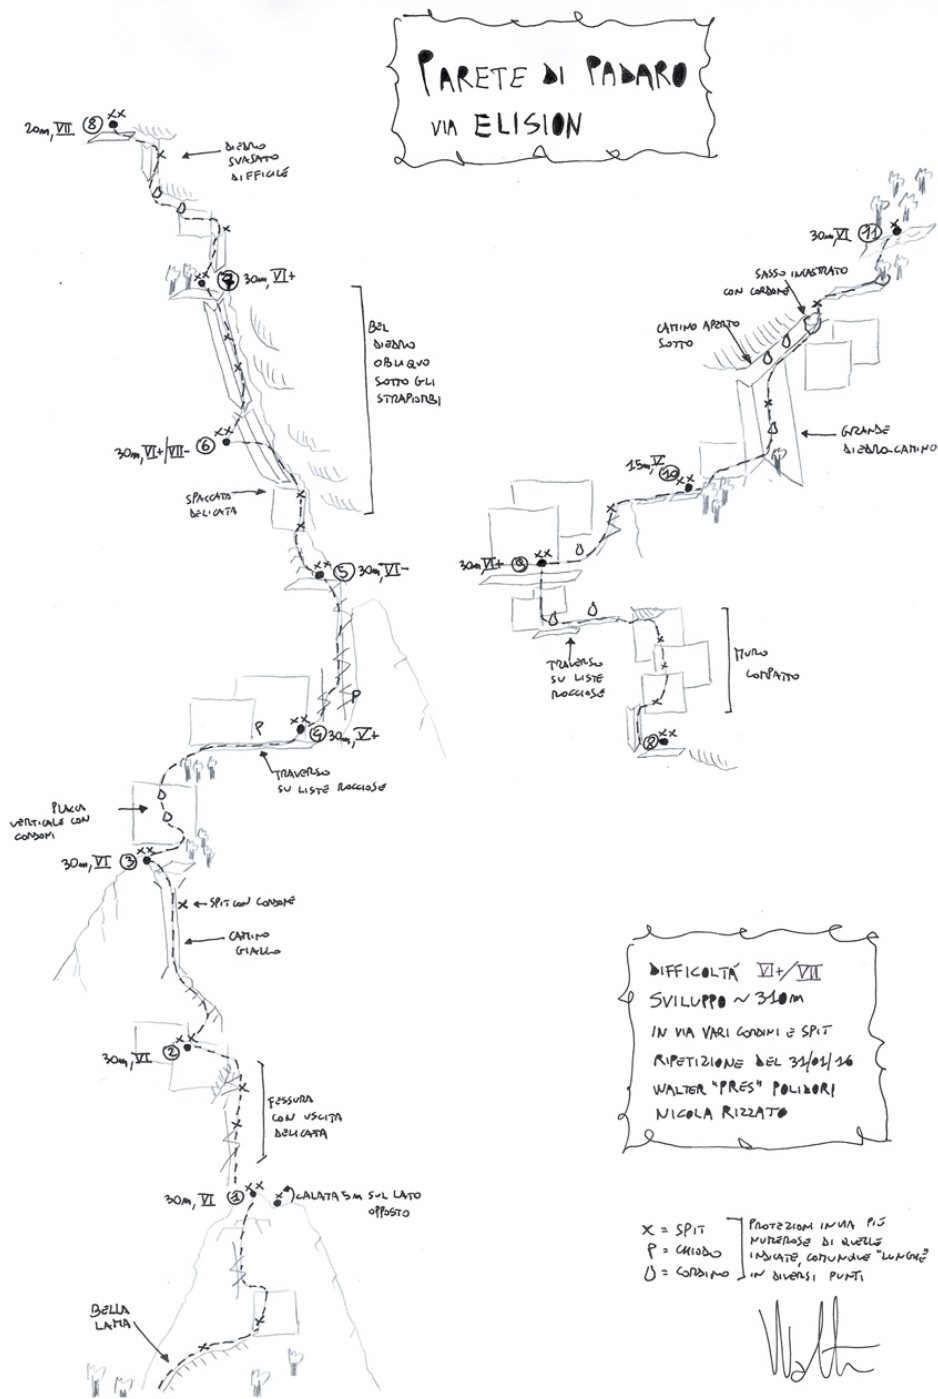 PARETE DI PADARO
VIA ELISION
20m, VII 8
DIEDRO
SVASATO
DIFFICILE
7 30m, VI+
BEL
DIEDRO
OBLIQUO
SOTTO GLI
STRAPIOMBI
30m, VI+/VII- 6
SPACCATA
DELICATA
5 30m, VI-
P
P
4 30m, V+
TRAVERSO
SU LISTE ROCCIOSE
PLACCA
VERTICALE CON
CORDONI
30m, VI 3
SPIT CON CORDONE
CAMINO
GIALLO
30m, VI 2
FESSURA
CON USCITA
DELICATA
30m, VI 1
CALATA 5m SUL LATO
OPPOSTO
BELLA
LAMA
30m, VI 11
SASSO INCASTRATO
CON CORDONE
CAMINO APERTO
SOTTO
GRANDE
DIEDRO-CAMINO
15m, V 10
30m, VI+ 9
TRAVERSO
SU LISTE
ROCCIOSE
MURO
COMPATTO
8
DIFFICOLTÁ VI+/VII
SVILUPPO ~ 310m
IN VIA VARI CORDINI E SPIT
RIPETIZIONE DEL 31/01/16
WALTER "PRES" POLIDORI
NICOLA RIZZATO
X = SPIT
P = CHIODO
= CORDINO
PROTEZIONI IN VIA PIÙ
NUMEROSE DI QUELLE
INDICATE, COMUNQUE "LUNGHE"
IN DIVERSI PUNTI
Walter